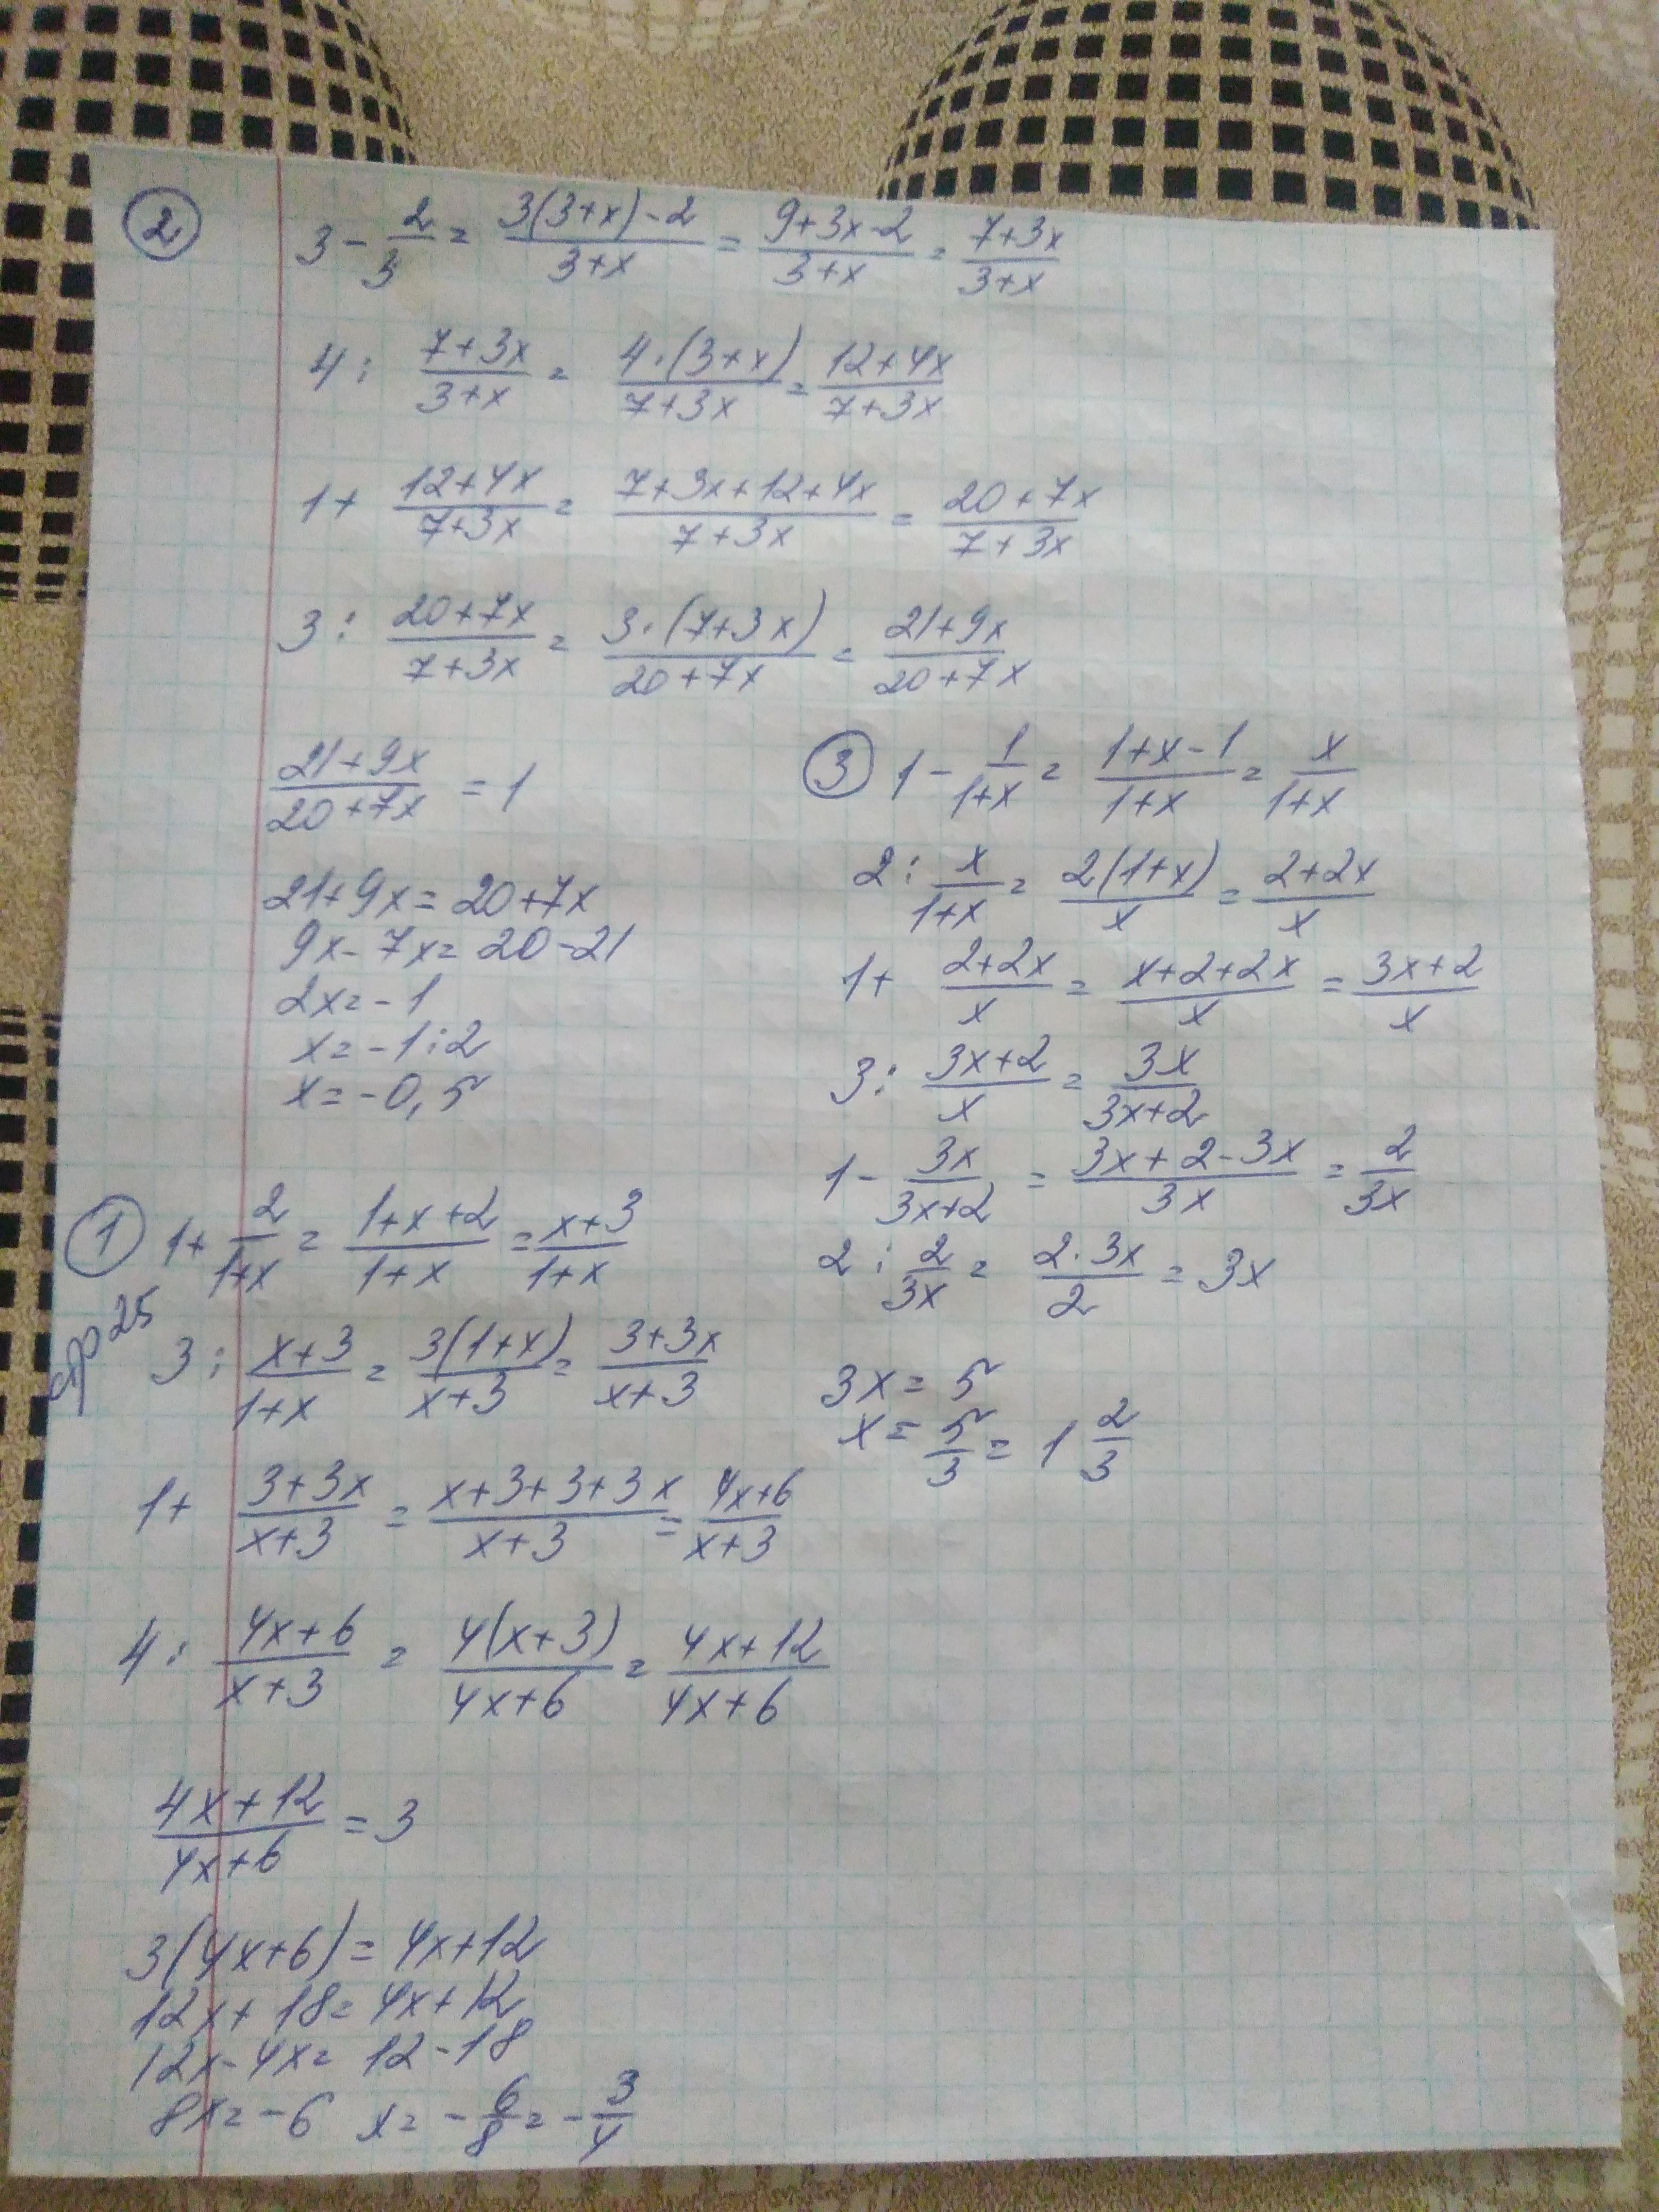 ② 3 - 2/3 = (3(3+x)-2)/(3+x) = (9+3x-2)/(3+x) = (7+3x)/(3+x)
4 : (7+3x)/(3+x) = (4·(3+x))/(7+3x) = (12+4x)/(7+3x)
1+ (12+4x)/(7+3x) = (7+3x+12+4x)/(7+3x) = (20+7x)/(7+3x)
3 : (20+7x)/(7+3x) = (3·(7+3x))/(20+7x) = (21+9x)/(20+7x)
(21+9x)/(20+7x) = 1
21+9x = 20+7x
9x-7x = 20-21
2x = -1
x = -1:2
x = -0,5
③ 1 - 1/(1+x) = (1+x-1)/(1+x) = x/(1+x)
2 : x/(1+x) = (2(1+x))/x = (2+2x)/x
1+ (2+2x)/x = (x+2+2x)/x = (3x+2)/x
3 : (3x+2)/x = 3x/(3x+2)
1 - 3x/(3x+2) = (3x+2-3x)/3x = 2/3x
2 : 2/3x = (2·3x)/2 = 3x
3x = 5
x = 5/3 = 1 2/3
① 1+ 2/(1+x) = (1+x+2)/(1+x) = (x+3)/(1+x)
25
3 : (x+3)/(1+x) = (3(1+x))/(x+3) = (3+3x)/(x+3)
1+ (3+3x)/(x+3) = (x+3+3+3x)/(x+3) = (4x+6)/(x+3)
4 : (4x+6)/(x+3) = (4(x+3))/(4x+6) = (4x+12)/(4x+6)
(4x+12)/(4x+6) = 3
3(4x+6) = 4x+12
12x+18 = 4x+12
12x-4x = 12-18
8x = -6 x = -6/8 = -3/4